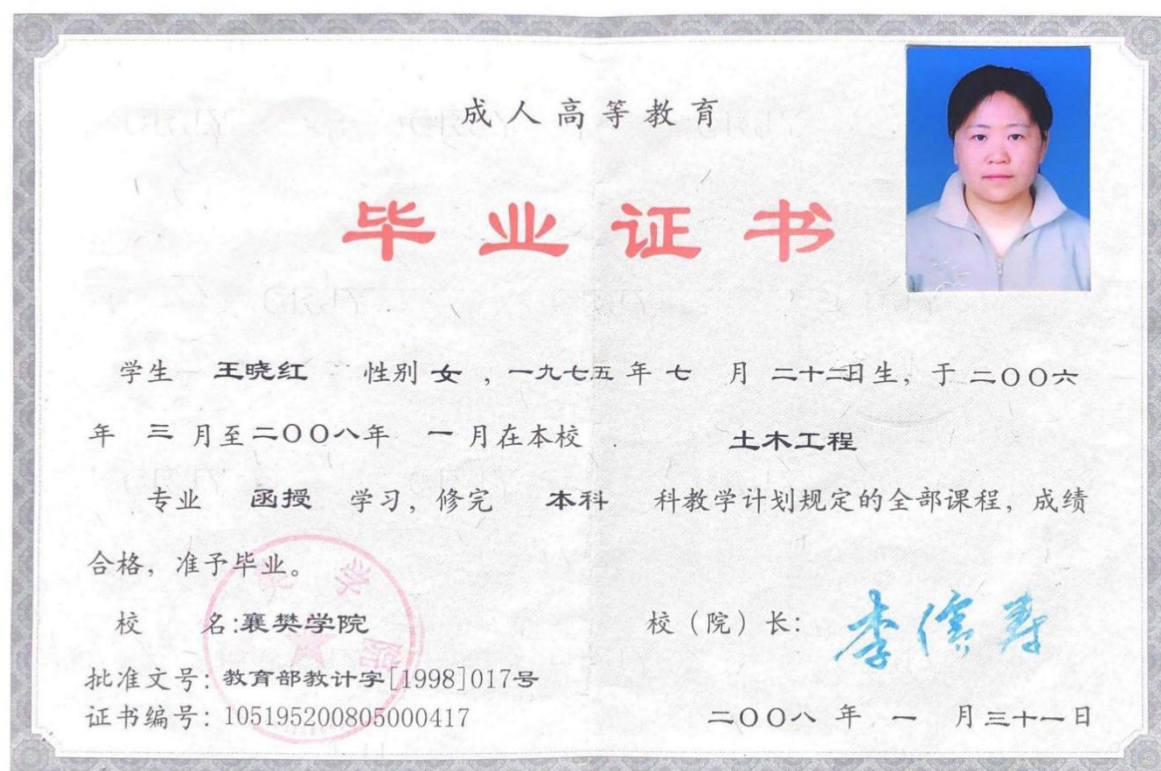 成人高等教育
毕业证书
学生 王晓红 性别 女 ，一九七五 年 七 月 二十二日生，于 二〇〇六
年 三 月至二〇〇八年 一 月在本校 土木工程
专业 函授 学习，修完 本科 科教学计划规定的全部课程，成绩
合格，准予毕业。
校 名：襄樊学院 校（院）长：
批准文号：教育部教计字[1998]017号
证书编号：105195200805000417 二〇〇八 年 一 月三十一日